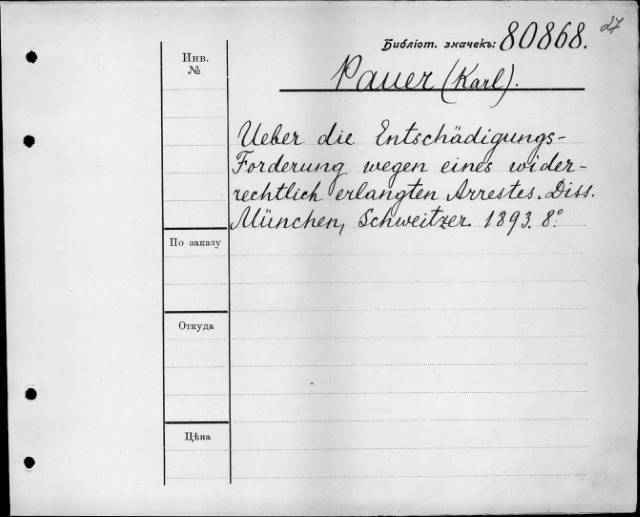 27
Библіот. значекъ: 80868.
Инв. №
Pauer (Karl).
Ueber die Entschädigungs-
Forderung wegen eines wider-
rechtlich erlangten Arrestes. Diss.
München, Schweitzer. 1893. 8°
По заказу
Откуда
Цѣна